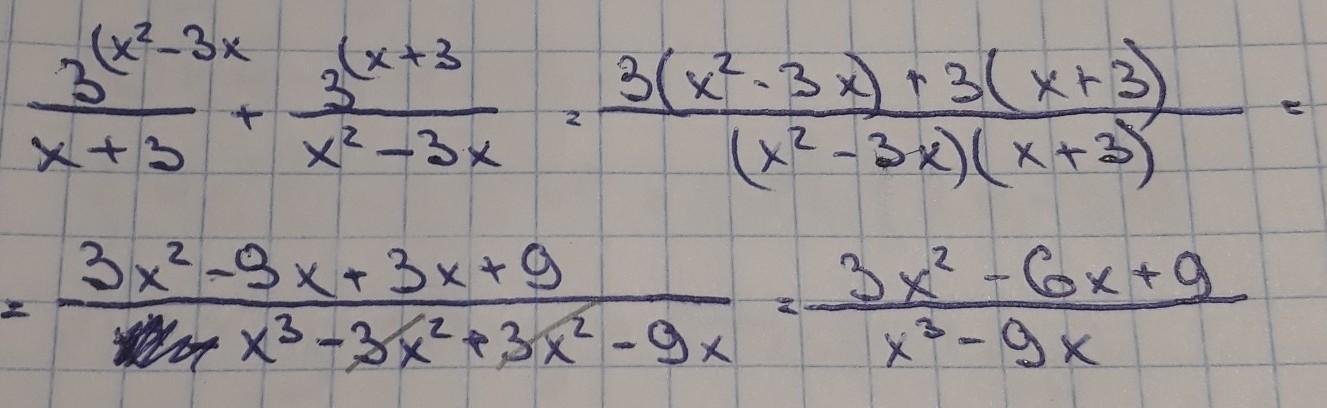 3^(x²-3x / x+3 + 3^(x+3 / x²-3x = 3(x²-3x)+3(x+3) / (x²-3x)(x+3) =
= 3x²-9x+3x+9 / x³-3x²+3x²-9x = 3x²-6x+9 / x³-9x